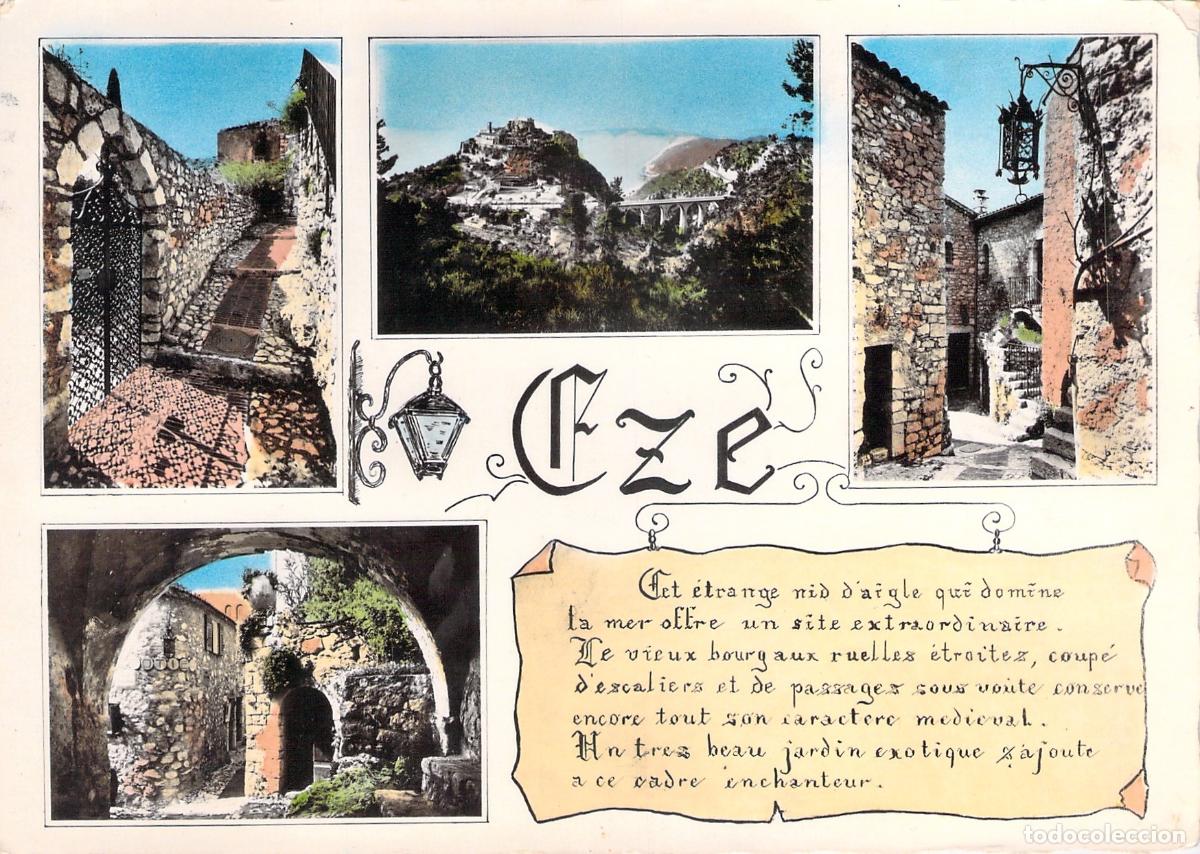 Eze
Cet étrange nid d'aigle qui domine
la mer offre un site extraordinaire.
Le vieux bourg aux ruelles étroites, coupé
d'escaliers et de passages sous voûte conserve
encore tout son caractere medieval.
Un tres beau jardin exotique s'ajoute
a ce cadre enchanteur.
todocoleccion